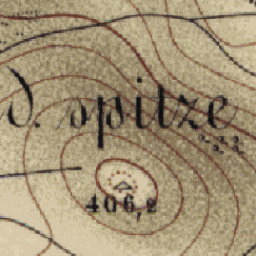 d. spitze
406,2